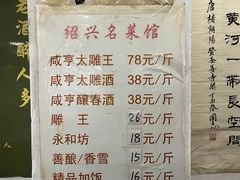 绍兴名菜馆
咸亨太雕王 78元/斤
咸亨太雕酒 38元/斤
咸亨醸春酒 38元/斤
雕王 26元/斤
永和坊 18元/斤
善酿/香雪 15元/斤
精品加饭 16元/斤
老酒醉人多
黄河一带长空间